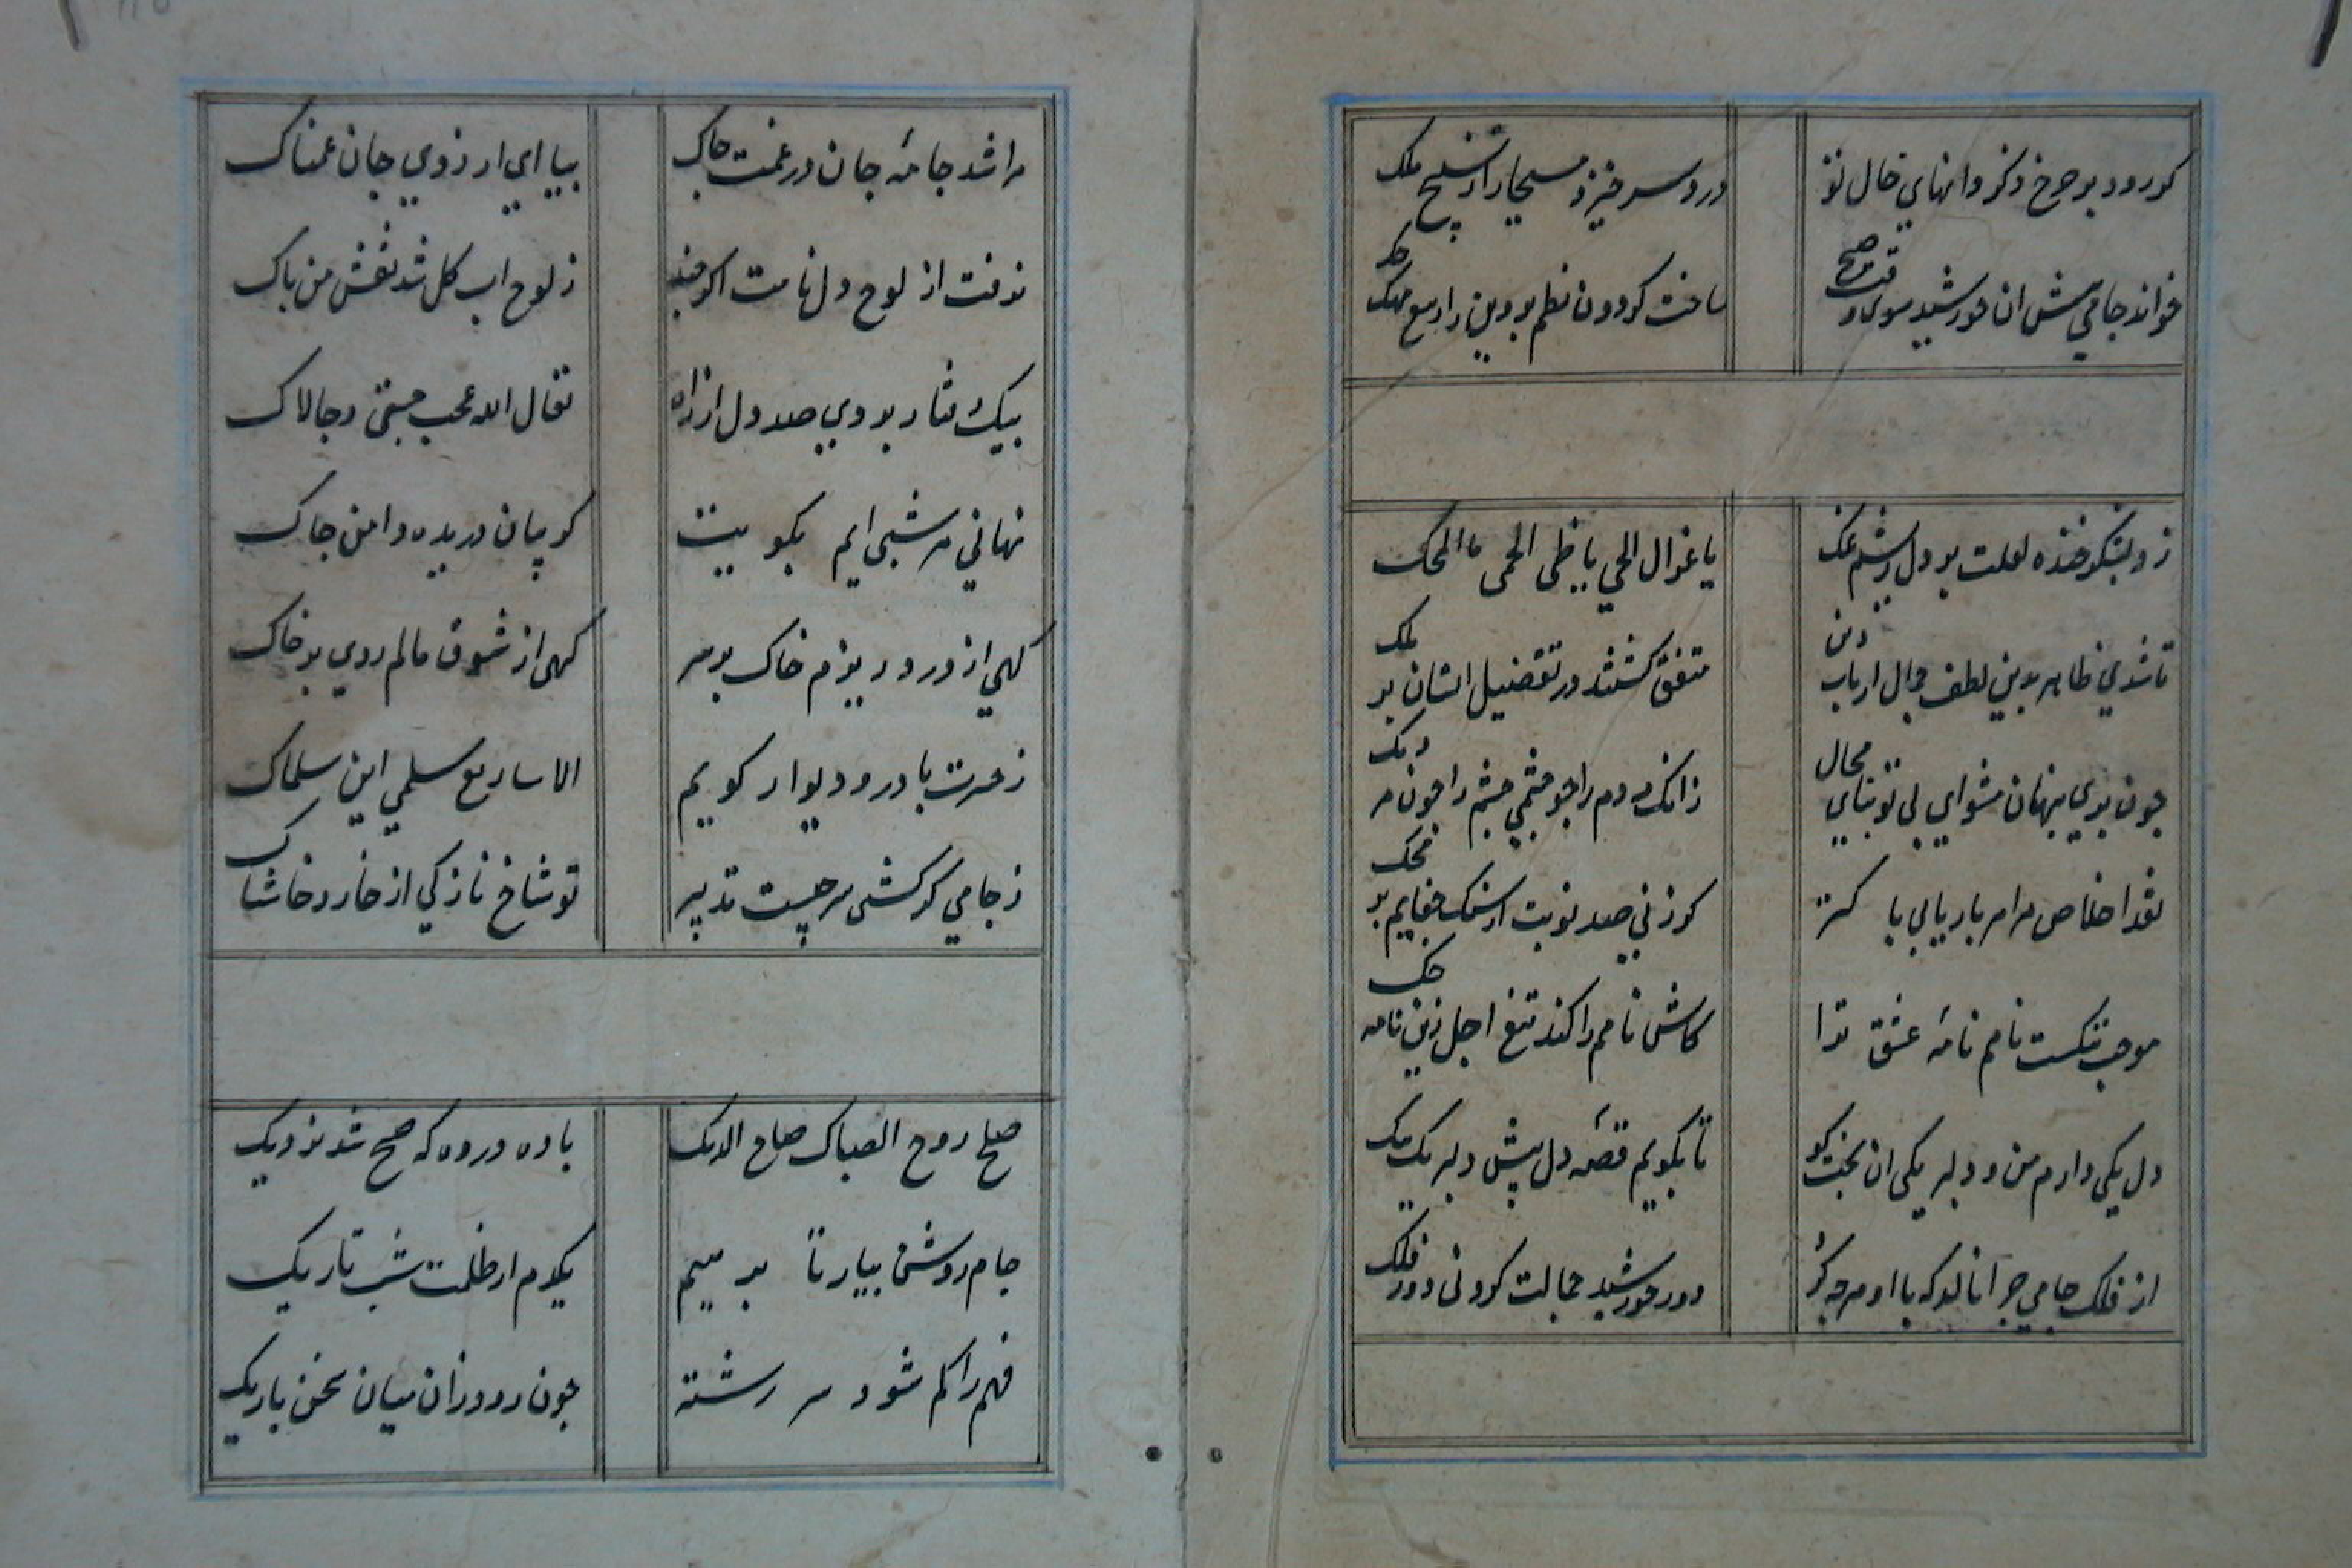 کر رود بر چرخ ذکر دانهای خال تو
درد سر خیزد مسیحا را ز تسبیح ملک
خواند جامی پیش ان خورشید سوی او
ساخت کردون نظم پروین را
ز د بشکر خنده لعلت بر دل ریشم نمک
یا غزال الحی یا ظبی الحمی ما املحک
تا شدی ظاهر بدین لطف جمال ارباب دین
متفق کشتند در تفضیل انسان بر ملک
چون پری پنهان مشو ای بی تو بینایی محال
زانک مردم را چو چشمی چشم را چون مردمک
نقد اخلاص مرا مر بار یابی پاکتر
کر زنی صد نوبت از سنک جفایم بر محک
موجب ننکست نامم نامهٔ عشق ترا
کاش نامم را کند تیغ اجل زین نامه حک
دل یکی دارم من و دلبر یکی ان بخت کو
تا بکویم قصهٔ دل پیش دلبر یک بیک
از فلک جامی چرا نالد که با او هر چه کرد
دور خورشید جمالت کرد نی دور فلک
مرا شد جامهٔ جان در غمت چاک
بیا ای ارزوی جان غمناک
نرفت از لوح دل نامت اکر چند
ز لوح اب کل شد نقش من پاک
بیک رفتار بردی صد دل از راه
تعالی الله عجب چستی و چالاک
نهانی هر شبی ایم بکویت
کریبان دریده دامن چاک
کهی از درد ریزم خاک بر سر
کهی از شوق مالم روی بر خاک
ز حسرت با در و دیوار کویم
الا یا ربع سلمی این سلماک
ز جامی کر کشی سر چیست تدبیر
تو شاخ نازکی او خار و خاشاک
صاح روح الصباک صاح الدیک
باده در ده که صبح شد نزدیک
جام روشن بیار تا برهیم
یکدم از ظلمت شب تاریک
فهم را کم شود سر رشته
چون رود زان میان سخن باریک